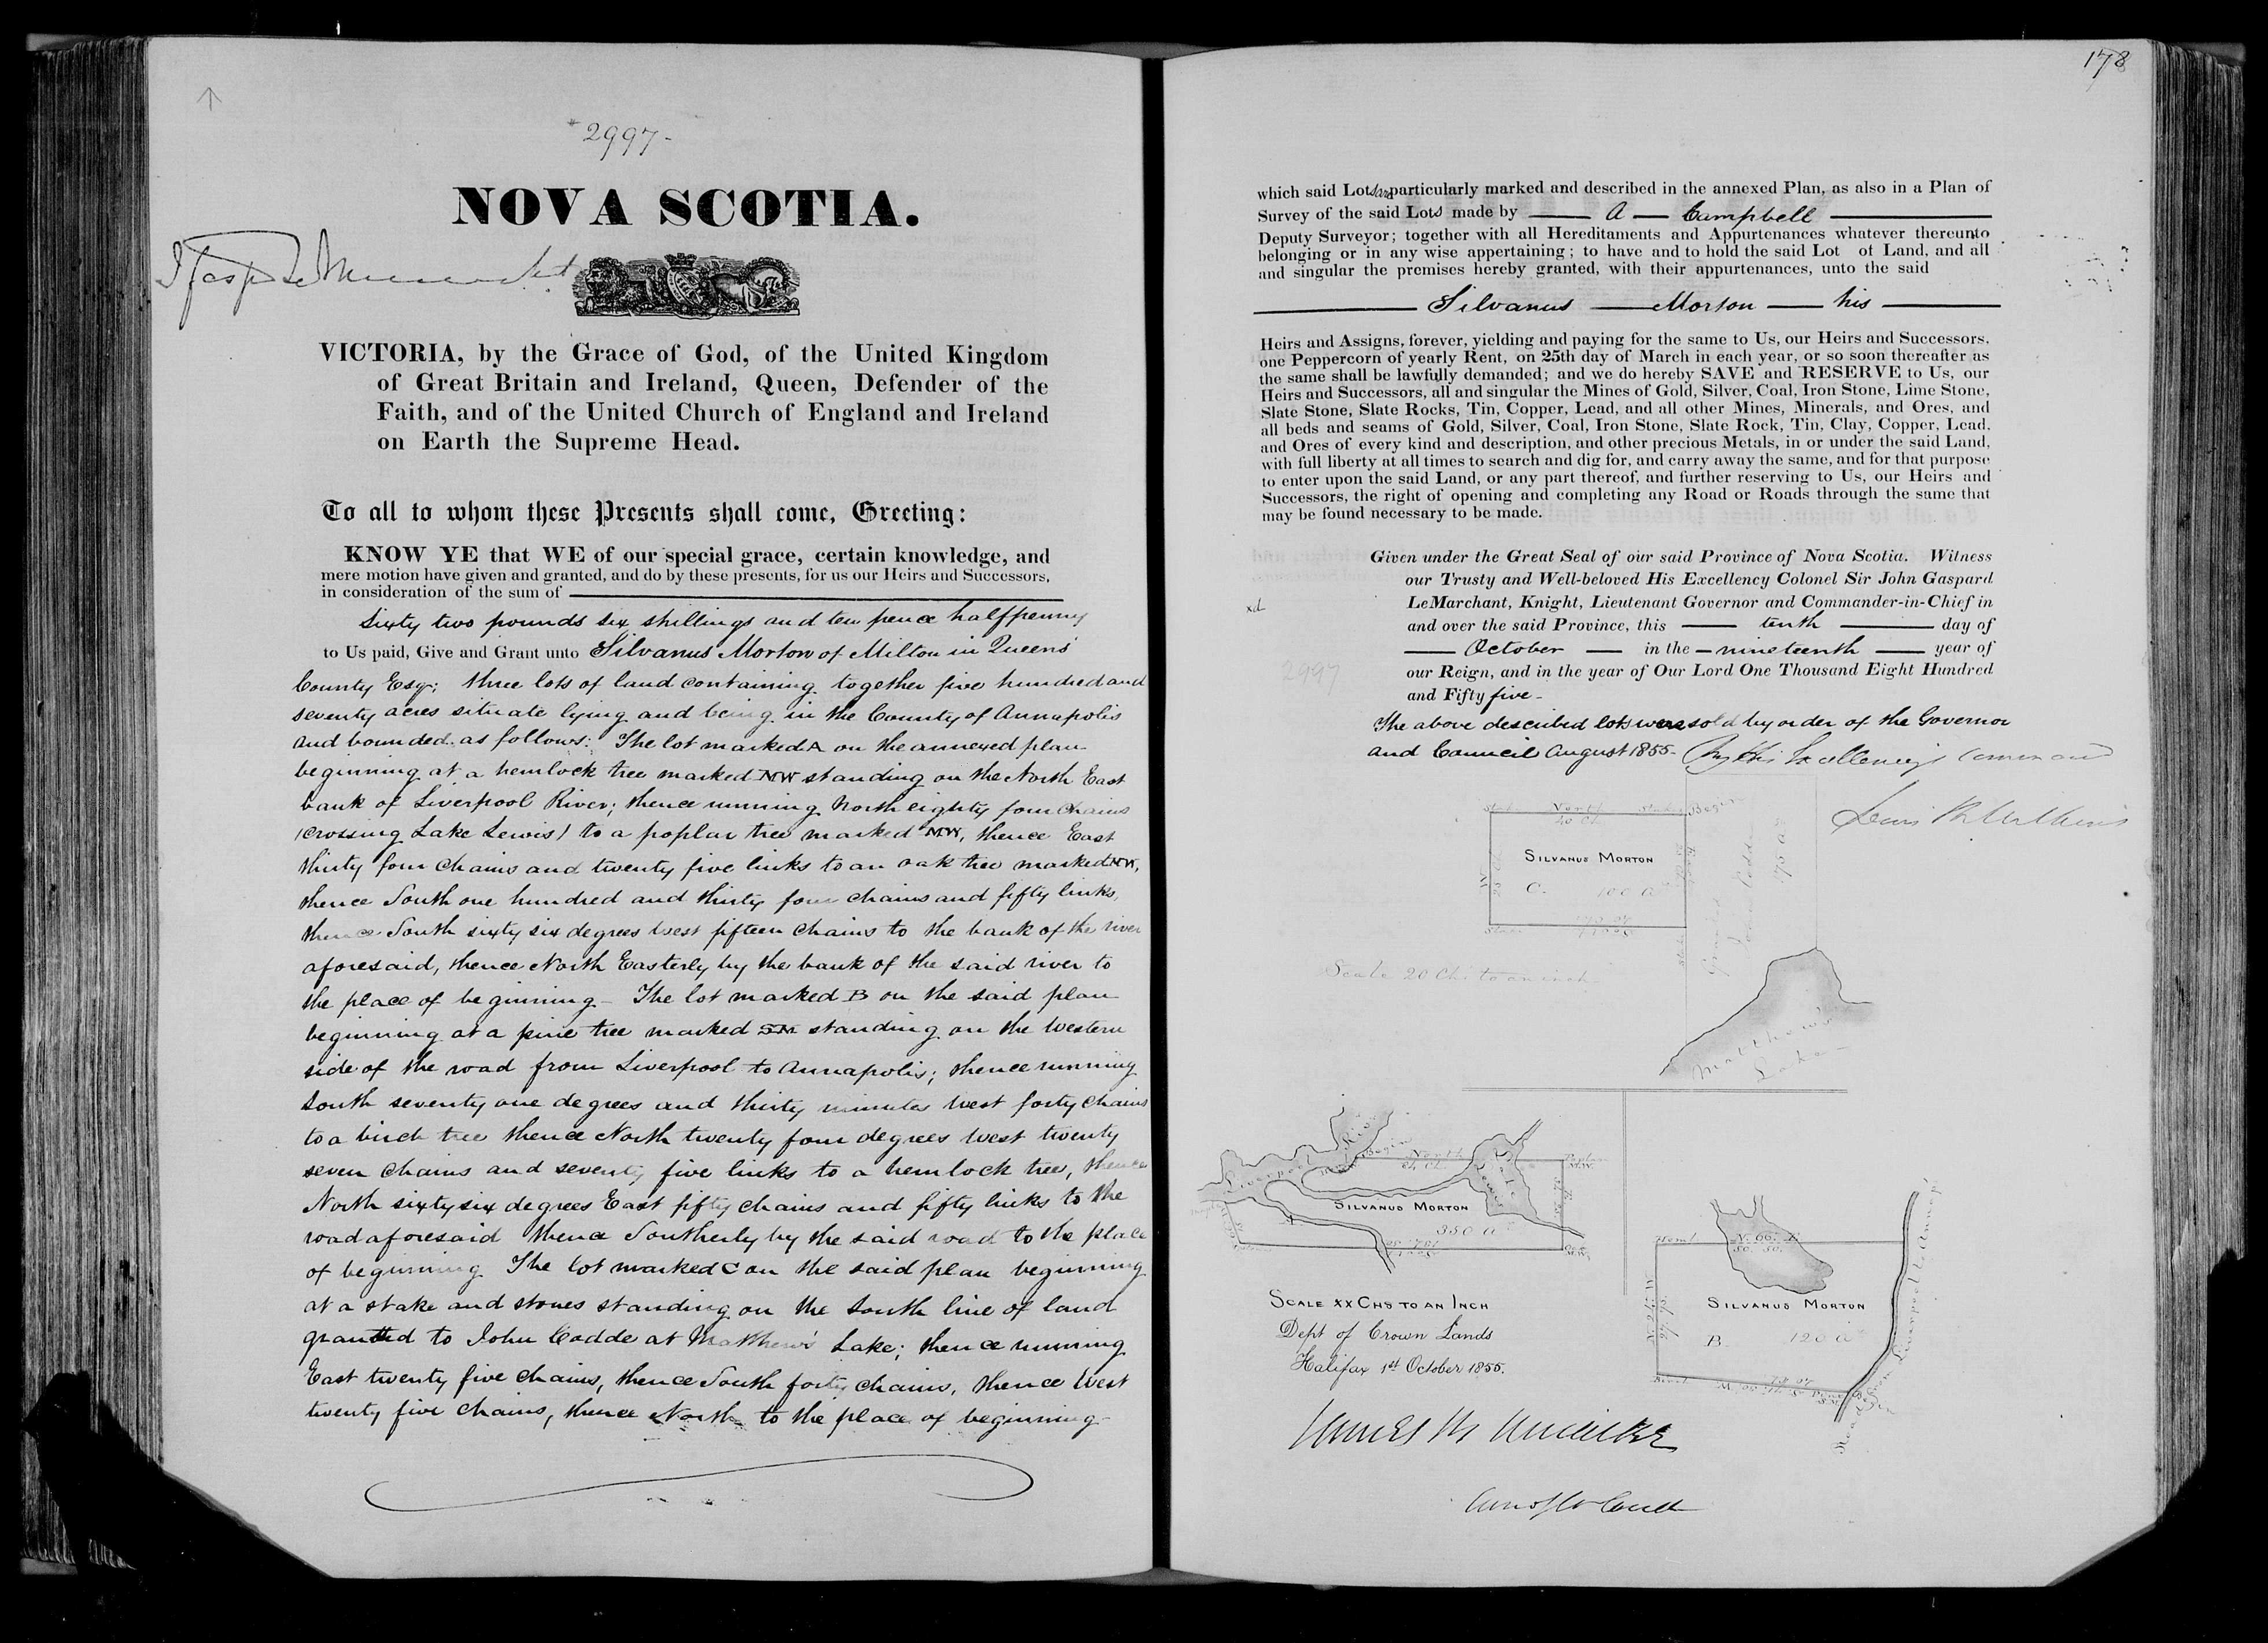 2997-
NOVA SCOTIA.
VICTORIA, by the Grace of God, of the United Kingdom
of Great Britain and Ireland, Queen, Defender of the
Faith, and of the United Church of England and Ireland
on Earth the Supreme Head.
To all to whom these Presents shall come, Greeting:
KNOW YE that WE of our special grace, certain knowledge, and
mere motion have given and granted, and do by these presents, for us our Heirs and Successors,
in consideration of the sum of
Sixty two pounds six shillings and ten pence halfpenny
to Us paid, Give and Grant unto Silvanus Morton of Milton in Queens
County Esqr; three lots of land containing together five hundred and
seventy acres situate lying and being in the County of Annapolis
and bounded as follows: The lot marked A on the annexed plan
beginning at a hemlock tree marked MW standing on the North East
bank of Liverpool River; thence running North eighty four chains
(crossing Lake Lewis) to a poplar tree marked MW, thence East
thirty four chains and twenty five links to an oak tree marked MW,
thence South one hundred and thirty four chains and fifty links,
thence South sixty six degrees West fifteen chains to the bank of the river
aforesaid, thence North Easterly by the bank of the said river to
the place of beginning - The lot marked B on the said plan
beginning at a pine tree marked SM standing on the Western
side of the road from Liverpool to Annapolis; thence running
South seventy one degrees and thirty minutes West forty chains
to a birch tree thence North twenty four degrees West twenty
seven chains and seventy five links to a hemlock tree, thence
North sixty six degrees East fifty chains and fifty links to the
road aforesaid thence Southerly by the said road to the place
of beginning The lot marked C on the said plan beginning
at a stake and stones standing on the South line of land
granted to John Codde at Matthew's Lake; thence running
East twenty five chains, thence South forty chains, thence West
twenty five chains, thence North to the place of beginning-
178
which said Lots are particularly marked and described in the annexed Plan, as also in a Plan of
Survey of the said Lots made by A Campbell
Deputy Surveyor; together with all Hereditaments and Appurtenances whatever thereunto
belonging or in any wise appertaining; to have and to hold the said Lot of Land, and all
and singular the premises hereby granted, with their appurtenances, unto the said
Silvanus Morton his
Heirs and Assigns, forever, yielding and paying for the same to Us, our Heirs and Successors,
one Peppercorn of yearly Rent, on 25th day of March in each year, or so soon thereafter as
the same shall be lawfully demanded; and we do hereby SAVE and RESERVE to Us, our
Heirs and Successors, all and singular the Mines of Gold, Silver, Coal, Iron Stone, Lime Stone,
Slate Stone, Slate Rocks, Tin, Copper, Lead, and all other Mines, Minerals, and Ores, and
all beds and seams of Gold, Silver, Coal, Iron Stone, Slate Rock, Tin, Clay, Copper, Lead,
and Ores of every kind and description, and other precious Metals, in or under the said Land,
with full liberty at all times to search and dig for, and carry away the same, and for that purpose
to enter upon the said Land, or any part thereof, and further reserving to Us, our Heirs and
Successors, the right of opening and completing any Road or Roads through the same that
may be found necessary to be made.
Given under the Great Seal of our said Province of Nova Scotia. Witness
our Trusty and Well-beloved His Excellency Colonel Sir John Gaspard
LeMarchant, Knight, Lieutenant Governor and Commander-in-Chief in
xd
and over the said Province, this tenth day of
October in the nineteenth year of
2997
our Reign, and in the year of Our Lord One Thousand Eight Hundred
and Fifty five-
The above described lots were sold by order of the Governor
and Council August 1855-
By His Excellency's Command
North
40 Ch
SILVANUS MORTON
C. 100 a
175 a
Scale 20 Chs to an inch
Matthew's
Lake
Liverpool River
North
Poplar
MW
Lewis Lake
SILVANUS MORTON
A 350 a
SCALE XX CHS TO AN INCH
Dept of Crown Lands
Halifax 1st October 1855.
Heml
N. 66. E
50. 50.
SILVANUS MORTON
B. 120 a